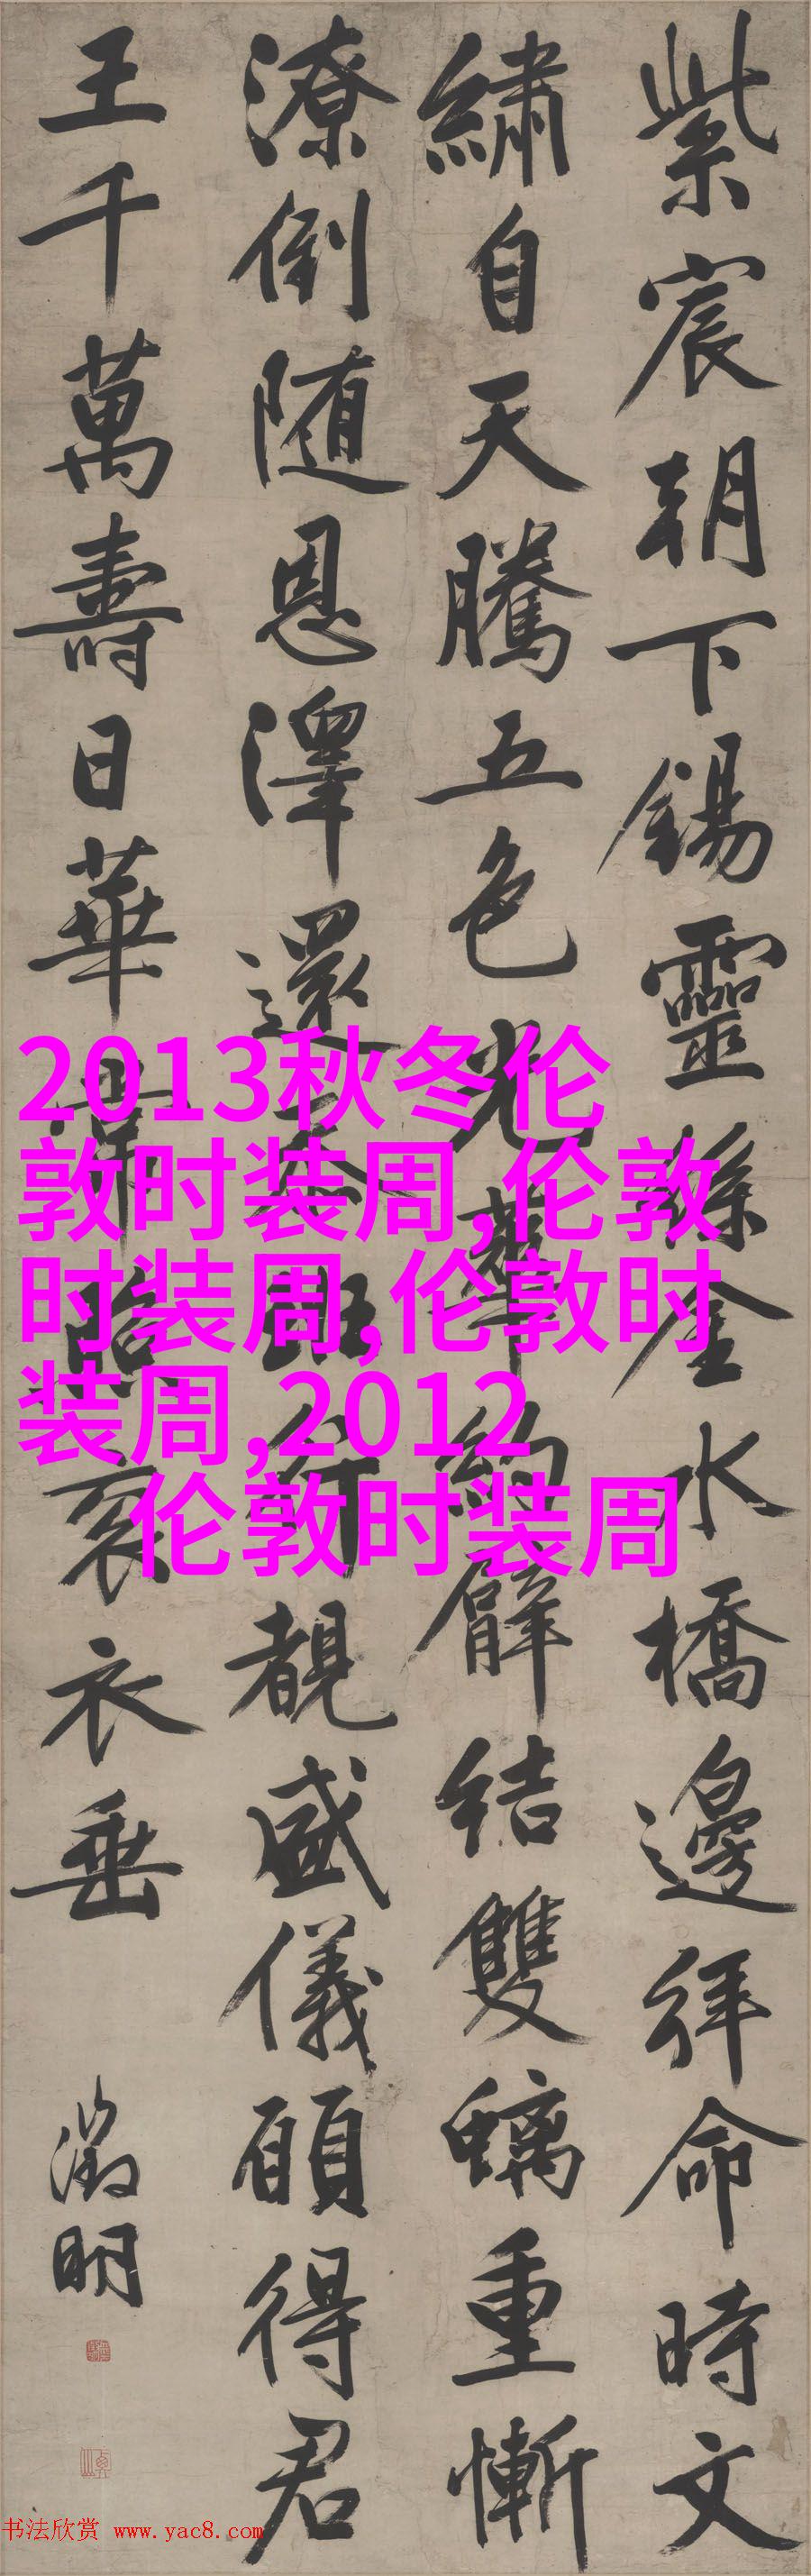 紫宸朝下錫靈絲金水橋邊拜命時文
繡自天騰五色光華約臂結雙螭重慚
潦倒随恩澤還班行覩盛儀願得君
王千萬壽日華常照袞衣垂
徵明
2013秋冬伦
敦时装周,伦敦
时装周,伦敦时
装周,2012
伦敦时装周
书法欣赏 www.yac8.com